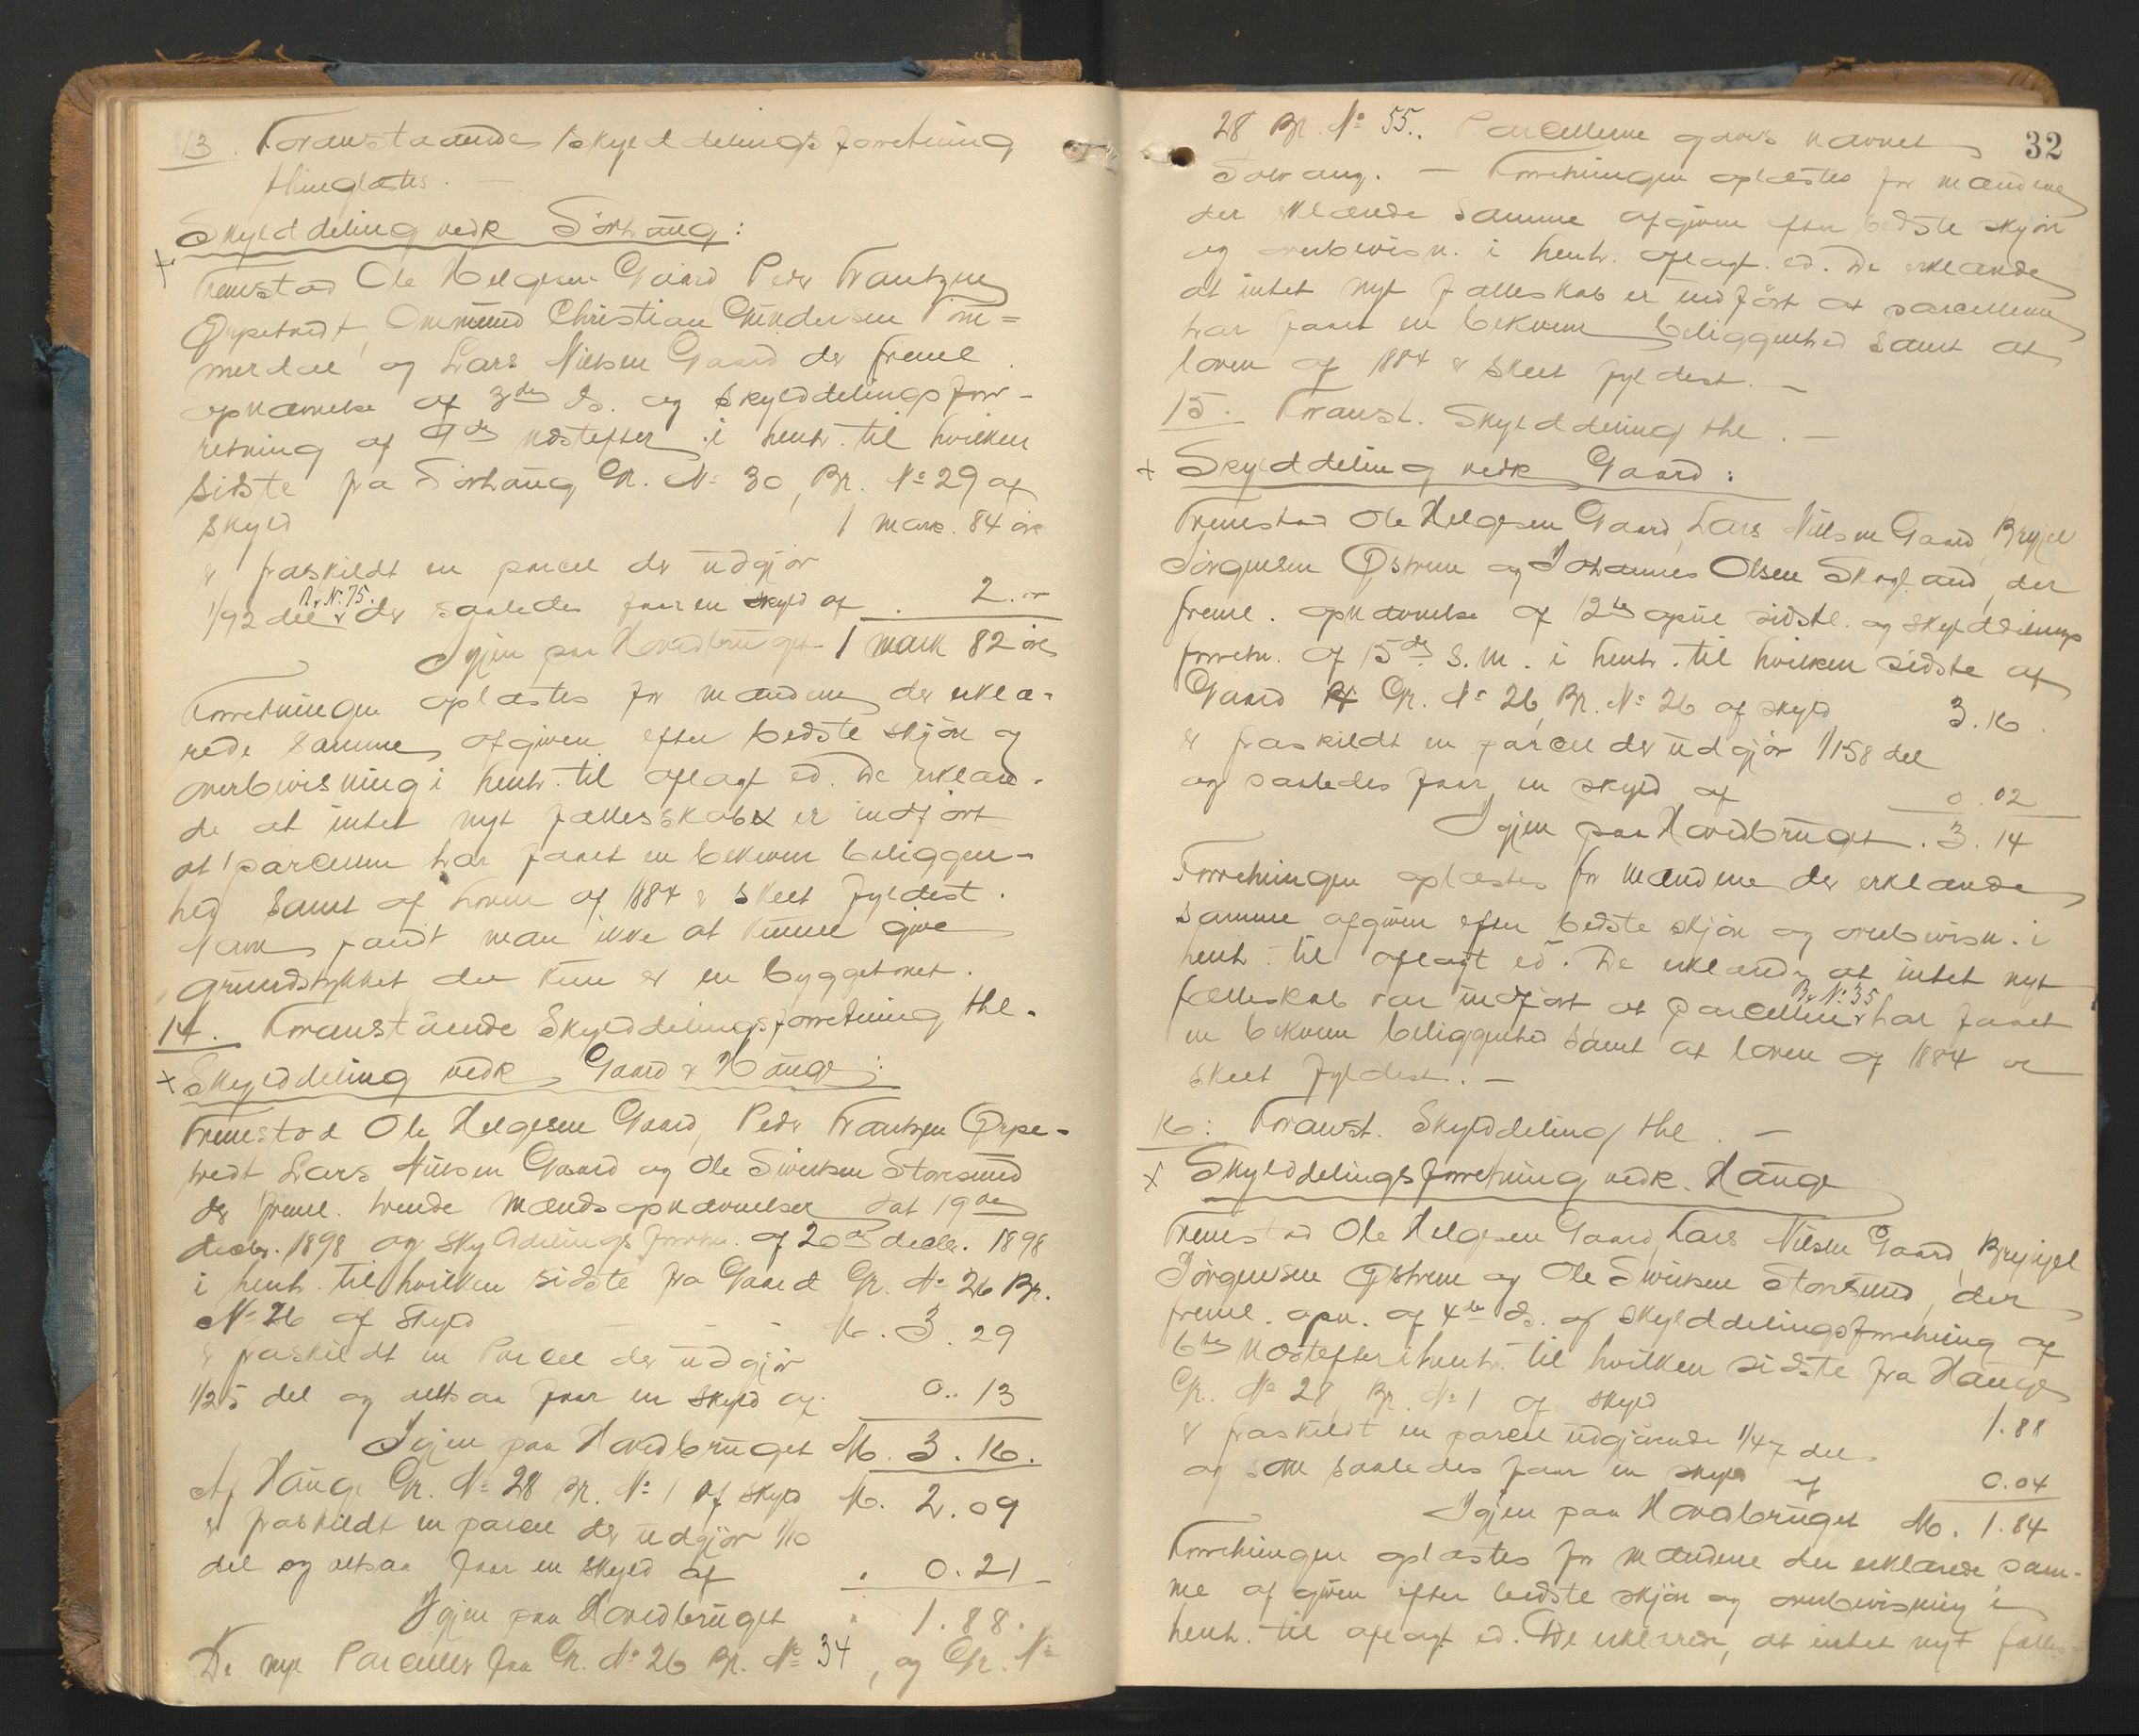 13. Foranstaaende Skylddelingsforretning
thinglæstes. —
Skylddeling vedk Sörhaug:
+ Fremstod Ole Helgesen Gaard Peder Frantzen
Ørpetvedt, Ommund Christian Gundersen Töm=
merdal og Lars Nielsen Gaard der freml.
opnævnelse af 3die ds. og skylddelingsfor-
retning af 9de næstefter i henh. til hvilken
sidste fra Sörhaug Gr. No 30, Br. No 29 af
skyld 1 mark. 84 öre
er fraskildt en parcel der udgjör
1/92 del Br. No. 75. der saaledes faar en skyld af . 2. "
Igjen paa Hovedbruget 1 mark 82 öre
Forretningen oplæstes for mændene der erklæ-
rede samme afgiven efter bedste skjön og
overbevisning i henh. til aflagt ed. De erklære-
de at intet nyt fællesskab er indfört
at parcellen har faaet en bekvem beliggen-
hed samt at loven af 1884 er skeet fyldest.
Navn fandt man ikke at kunne give
grundstykket der kun er en byggetomt.
14. Foranstående Skylddelingsforretning thl.
+ Skylddeling vedk. Gaard & Hauge:
Fremstod Ole Helgesen Gaard, Peder Frantzen Ørpe-
tvedt Lars Nilsen Gaard og Ole Sivertsen Storesund
der freml. tvende mændsopnævnelser dat 19de
decbr. 1898 og skylddelingsforretn. af 20de decbr. 1898
i henh. til hvilken sidste fra Gaard Gr. No 26 Br.
No 26 af skyld — — - M. 3. 29
er fraskildt en Parcel der udgjör
1/25 del og altsaa faar en skyld af 0.. 13
Igjen paa Hovedbruget M. 3. 16.
Af Hauge Gr. No 28 Br. No 1 af skyld M. 2. 09
er fraskildt en parcel der udgjör 1/10
del og altsaa faar en skyld af . 0. 21
Igjen paa Hovedbruget " 1. 88.
De nye Parceller faa Gr. No 26 Br. No 34, og Gr. No
32
28 Br. No 55.. Parcellerne gaves navnet
Solvang. — Forretningen oplæstes for mændene
der erklærede samme afgiven efter bedste skjön
og overbevisn. i henh. aflagt ed. De erklærede
at intet nyt fælleskab er indfört at parcellerne
har faaet en bekvem beliggenhed samt at
loven af 1884 er skeet fyldest. —
15. Foranst. Skylddeling thl. —
+ Skylddeling vedk Gaard:
Fremstod Ole Helgesen Gaard, Lars Nilsen Gaard, Bryjel
Jörgensen Østrem og Johannes Olsen Skogland, der
freml. opnævnelse af 12te april sidstl. og skylddelings
forretn. af 15de s. m. i henh. til hvilken sidste af
Gaard Gr. No 26, Br. No 26 af skyld 3. 16.
er fraskildt en parcel der udgjör 1/158 del
og saaledes faar en skyld af 0. 02
Igjen paa Hovedbruget. 3. 14
Forretningen oplæstes for mændene der erklærede
samme afgiven efter bedste skjön og overbevisn. i
henh. til aflagt ed. De erklærede, at intet nyt
fælleskab var indfört at parcellen Br. No. 35 har faaet
en bekvem beliggenhed samt at loven af 1884 er
skeet fyldest. —
16: Foranst. Skylddeling thl. —
+ Skylddelingsforretning vedk. Hauge
Fremstod Ole Helgesen Gaard, Lars Nilsen Gaard, Bryjel
Jörgensen Østrem og Ole Sivertsen Storesund, der
freml. opn. af 4de ds. og skylddelingsforretning af
6te næstefter i henh. til hvilken sidste fra Hauge
Gr. No 28, Br. No 1 af skyld 1. 88
er fraskildt en parcel udgjörende 1/47 del
og som saaledes faar en skyld af 0. 04
Igjen paa Hovedbruget M. 1. 84
Forretningen oplæstes for mændene der erklærede sam-
me afgiven efter bedste skjön og overbevisning i
henh. til aflagt ed. De erklærede, at intet nyt fælles-